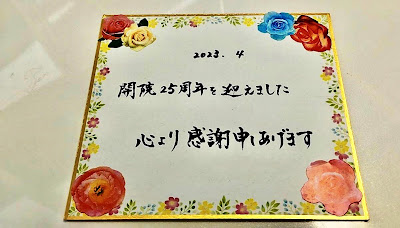 2023.4
開院25周年を迎えました
心より感謝申しあげます